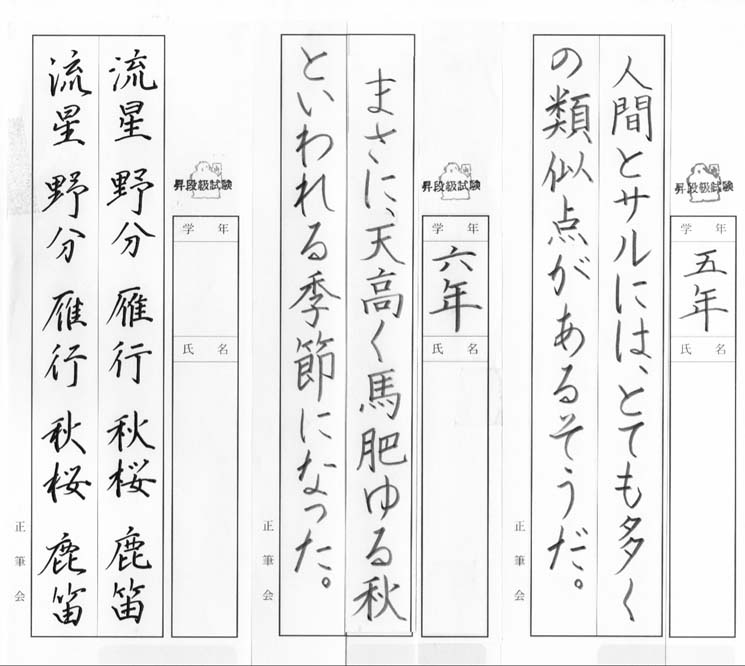 昇段級試験
学年
五年
氏名
人間とサルには、とても多く
の類似点があるそうだ。
正筆会
昇段級試験
学年
六年
氏名
まさに、天高く馬肥ゆる秋
といわれる季節になった。
正筆会
昇段級試験
学年
氏名
流星 野分 雁行 秋桜 鹿笛
流星 野分 雁行 秋桜 鹿笛
正筆会